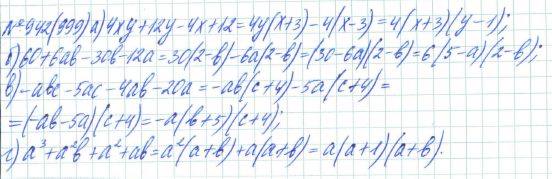 №942(999) а) 4xy+12y-4x+12=4y(x+3)-4(x-3)=4(x+3)(y-1);
б) 60+6ab-30b-12a=30(2-b)-6a(2-b)=(30-6a)(2-b)=6(5-a)(2-b);
в) -abc-5ac-4ab-20a=-ab(c+4)-5a(c+4)=
=(-ab-5a)(c+4)=-a(b+5)(c+4);
г) a³+a²b+a²+ab=a²(a+b)+a(a+b)=a(a+1)(a+b).